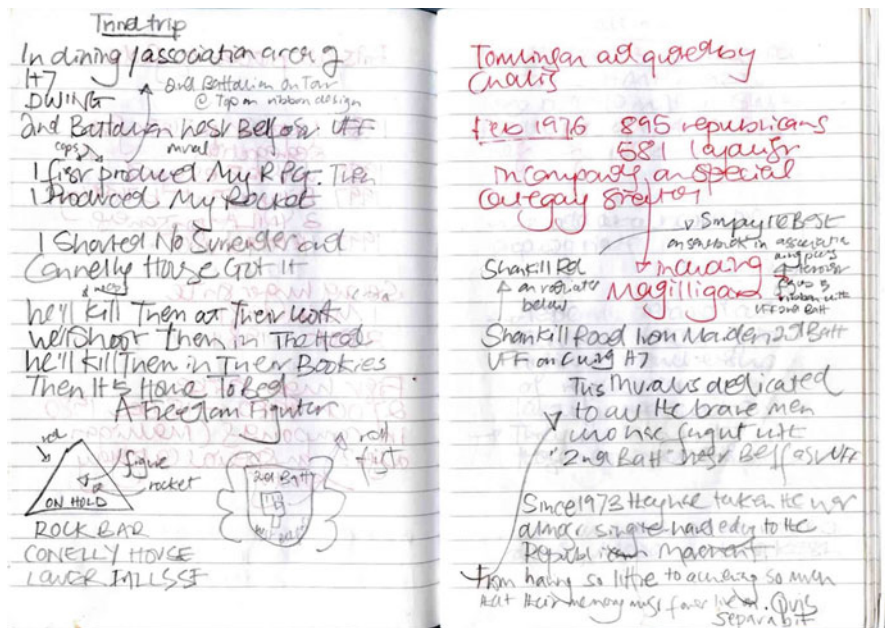 trip
In dining / association area 2
H7
D WING
2nd Battalion on Tour
@ Top on ribbon design
2nd Battalion West Belfast UFF
mural
caps
I first produced My RPG. Then
I Produced My Rocket
I Shouted No Surrender and
Connelly House Got It
caps
We'll Kill Them at Their Work
We'll Shoot them in The Head
We'll Kill Them in Their Bookies
Then It's Home To Bed
A Freedom Fighter
red
figure
rocket
ON HOLD
red
fist
2nd Batt
ROCK BAR
CONELLY HOUSE
LOWER FALLS SF
Feb 1976 895 republicans
581 loyalist
in compounds on special
category status
Simply the BEST
Shankill Rd
on radiator
below
including
Magilligan
ribbon with
UFF 2nd Batt
Shankill Road Iron Maiden 2nd Batt
UFF on C wing H7
This Mural is dedicated
to all the brave men
who have fought with
2nd Batt West Belfast UFF
Since 1973 they have taken the war
almost single handedly to the
Republican Movement
From having so little to achieving so much
that their memory must forever live on. Quis
Separabit